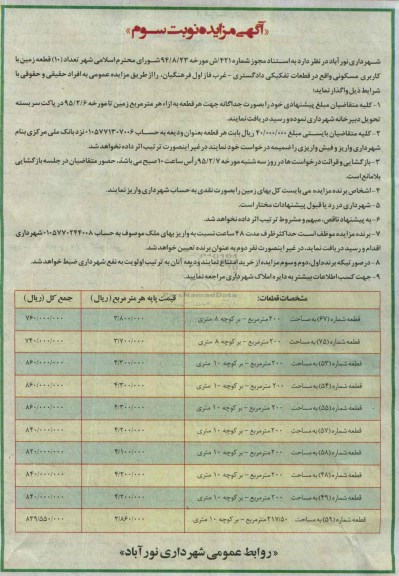 «آگهی مزایده نوبت سوم»
شهرداری نورآباد در نظر دارد به استناد مجوز شماره ۴۲۱/ش مورخه ۹۴/۸/۲۳ شورای محترم اسلامی شهر تعداد (۱۰) قطعه زمین با
کاربری مسکونی واقع در قطعات تفکیکی دادگستری - غرب فاز اول فرهنگیان، را از طریق مزایده عمومی به افراد حقیقی و حقوقی با
شرایط ذیل واگذار نماید:
۱- کلیه متقاضیان مبلغ پیشنهادی خود را بصورت جداگانه جهت هر قطعه به ازاء هر مترمربع زمین تا مورخه ۹۵/۲/۶ در پاکت سربسته
تحویل دبیرخانه شهرداری نموده و رسید دریافت نمایند.
۲- کلیه متقاضیان بایستی مبلغ ۴۰/۰۰۰/۰۰۰ ریال بابت هر قطعه بعنوان ودیعه به حساب ۰۱۰۵۷۷۱۳۰۷۰۰۶ نزد بانک ملی مرکزی بنام
شهرداری واریز و فیش واریزی را ضمیمه درخواست خود نمایند. در غیر اینصورت ترتیب اثر داده نخواهد شد.
۳- بازگشایی و قرائت درخواست ها در روز سه شنبه مورخه ۹۵/۲/۷ رأس ساعت ۱۰ صبح می باشد، حضور متقاضیان در جلسه بازگشایی
بلامانع است.
۴- اشخاص برنده مزایده می بایست کل بهای زمین را بصورت نقدی به حساب شهرداری واریز نمایند.
۵- شهرداری در رد یا قبول پیشنهادات مختار است.
۶- به پیشنهاد ناقص، مبهم و مشروط ترتیب اثر داده نخواهد شد.
۷- برنده مزایده موظف است حداکثر ظرف مدت ۴۸ ساعت نسبت به واریز بهای ملک موصوف به حساب ۰۱۰۵۷۷۰۲۴۴۰۰۸ شهرداری
اقدام و رسید دریافت نماید، در غیر اینصورت نفر دوم به عنوان برنده تعیین خواهد شد.
۸- در صورتیکه برنده اول، دوم و سوم مزایده از خرید امتناع نمایند ودیعه آنان به ترتیب اولویت به نفع شهرداری ضبط خواهد شد.
۹- جهت کسب اطلاعات بیشتر به دایره املاک شهرداری مراجعه نمایید.
مشخصات قطعات: قیمت پایه هر مترمربع (ریال) جمع کل (ریال)
قطعه شماره (۶۷) به مساحت ۲۰۰ مترمربع - بر کوچه ۸ متری ۳/۸۰۰/۰۰۰ ۷۶۰/۰۰۰/۰۰۰
قطعه شماره (۷۵) به مساحت ۲۰۰ مترمربع - بر کوچه ۸ متری ۳/۷۰۰/۰۰۰ ۷۴۰/۰۰۰/۰۰۰
قطعه شماره (۵۳) به مساحت ۲۰۰ مترمربع - بر کوچه ۱۰ متری ۴/۳۰۰/۰۰۰ ۸۶۰/۰۰۰/۰۰۰
قطعه شماره (۵۴) به مساحت ۲۰۰ مترمربع - بر کوچه ۱۰ متری ۴/۳۰۰/۰۰۰ ۸۶۰/۰۰۰/۰۰۰
قطعه شماره (۵۵) به مساحت ۲۰۰ مترمربع - بر کوچه ۱۰ متری ۴/۳۰۰/۰۰۰ ۸۶۰/۰۰۰/۰۰۰
قطعه شماره (۵۷) به مساحت ۲۰۰ مترمربع - بر کوچه ۱۰ متری ۴/۲۰۰/۰۰۰ ۸۴۰/۰۰۰/۰۰۰
قطعه شماره (۵۸) به مساحت ۲۰۰ مترمربع - بر کوچه ۱۰ متری ۴/۱۰۰/۰۰۰ ۸۲۰/۰۰۰/۰۰۰
قطعه شماره (۴۸) به مساحت ۲۰۰ مترمربع - بر کوچه ۱۰ متری ۴/۲۰۰/۰۰۰ ۸۴۰/۰۰۰/۰۰۰
قطعه شماره (۴۹) به مساحت ۲۰۰ مترمربع - بر کوچه ۱۰ متری ۴/۲۰۰/۰۰۰ ۸۴۰/۰۰۰/۰۰۰
قطعه شماره (۵۹) به مساحت ۲۱۷/۵۰ مترمربع - بر کوچه ۱۰ متری ۳/۸۶۰/۰۰۰ ۸۳۹/۵۵۰/۰۰۰
«روابط عمومی شهرداری نورآباد»